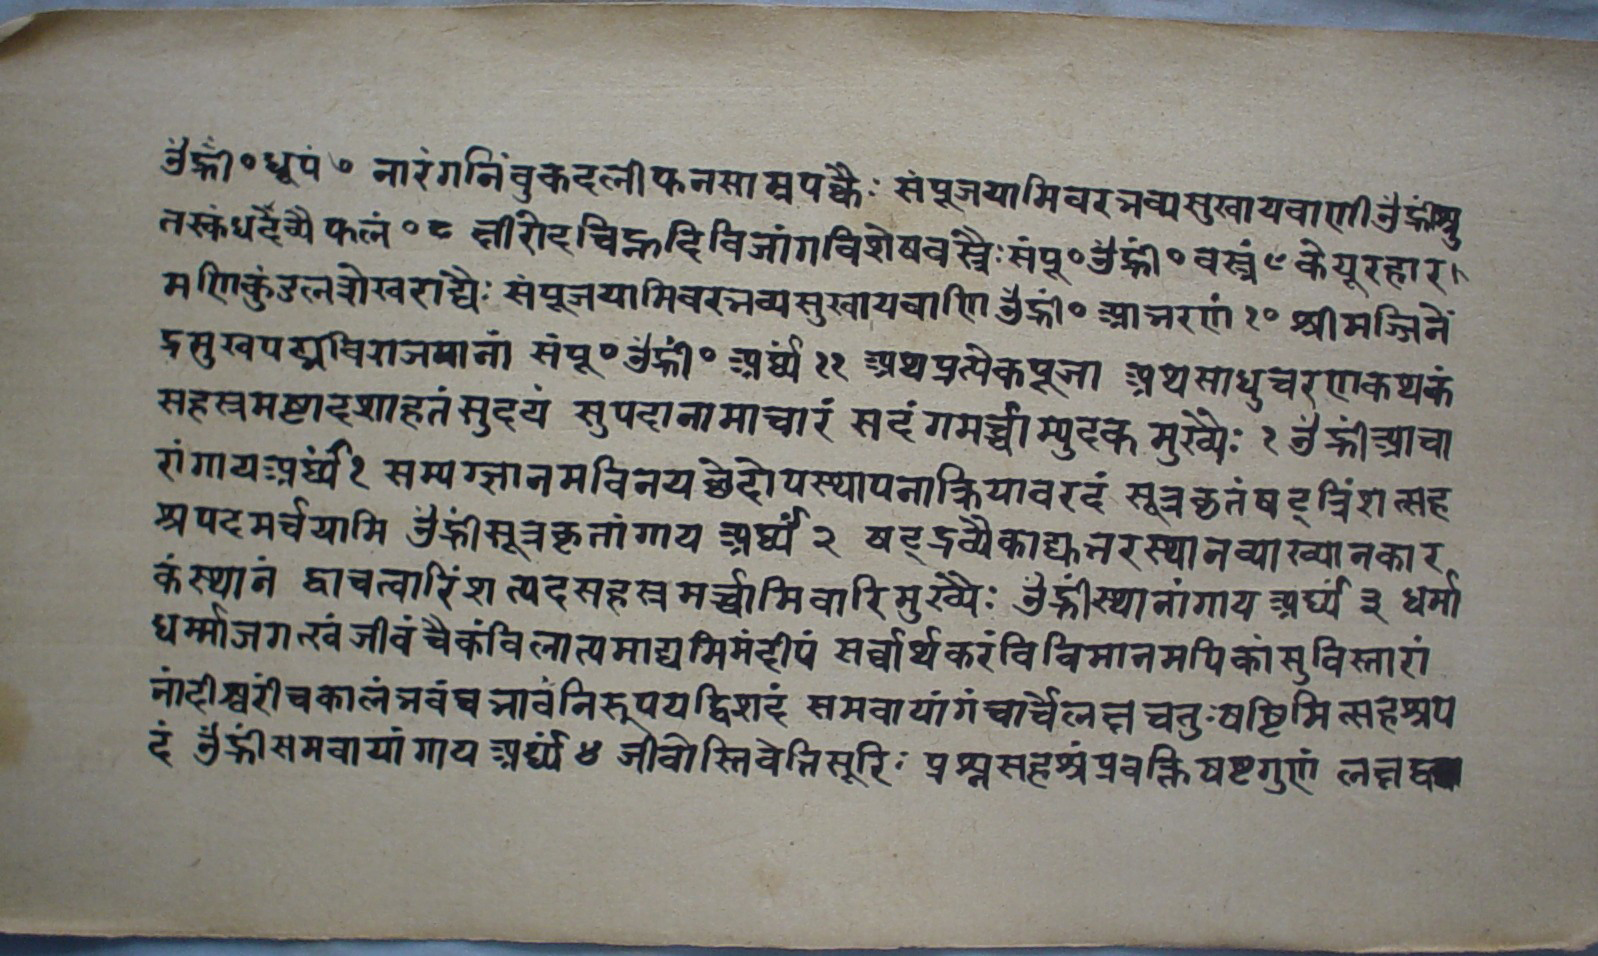 ॐह्रीं॰धूपं ७ नारंगनिंवुकदलीफनसाम्रपक्वैः संपूजयामिवरभव्यसुखायवाणीॐह्रींश्रु
तस्कंधदेव्यै फलं ॰ ८ क्षीरोदचिह्नदिविजांगविशेषवस्त्रैः संपू॰ ॐह्रीं॰ वस्त्रं ९ केयूरहार।
मणिकुंडलशेखराद्यैः संपूजयामिवरभव्यसुखायवाणि ॐह्रीं॰ आभरणं १० श्रीमज्जिनें
द्रमुखपद्मविराजमानां संपू॰ ॐह्रीं॰ अर्घ्यं ११ अथप्रत्येकपूजा अथसाधुचरणकथकं
सहस्रमष्टादशाहतंसुदयं सुपदानामाचारं सदंगमर्च्चाम्युदकमुख्यैः १ ॐह्रींआचा
रांगायअर्घ्यं १ सम्यग्ज्ञानमविनयछेदोपस्थापनाक्रियावरदं सूत्रकृतंषट्त्रिंशत्सह
श्रपदमर्चयामि ॐह्रींसूत्रकृतांगाय अर्घ्यं २ षट्द्रव्यैकाद्युत्तरस्थानव्याख्यानकार
कंस्थानं द्वाचत्वारिंशत्पदसहस्रमर्च्चामिवारिमुख्यैः ॐह्रींस्थानांगाय अर्घ्यं ३ धर्मा
धर्म्माजगत्खंजीवंचैकंविलात्पमाद्यमिमंदीपं सर्व्वार्थकरंविविमानमपिकांसुविस्तारां
नांदीश्वरींचकालंभवंचभावंनिरूपयद्विशदं समवायांगंचार्चेलक्षचतुःषष्टिमित्सहश्रप
दं ॐह्रींसमवायांगाय अर्घ्यं ४ जीवोस्तिवेत्तिसूरिः प्रश्नसहश्रंप्रवक्तिषष्टगुणं लक्षद्व